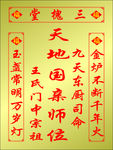 三槐堂
金炉不断千年火
九天东厨司命
天地国亲师位
王氏门中宗祖
玉盏常明万岁灯